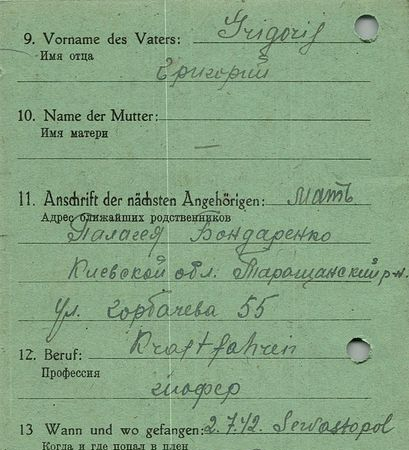 9. Vorname des Vaters: Grigorij
Имя отца
Григорий
10. Name der Mutter:
Имя матери
—
11. Anschrift der nächsten Angehörigen: мать
Адрес ближайших родственников
Палагея Бондаренко
Киевской обл. Таращанский р-н.
ул. Горбачева 55
12. Beruf: Kraftfahrer
Профессия
шофер
13 Wann und wo gefangen: 2.7.42. Sewastopol
Когда и где попал в плен